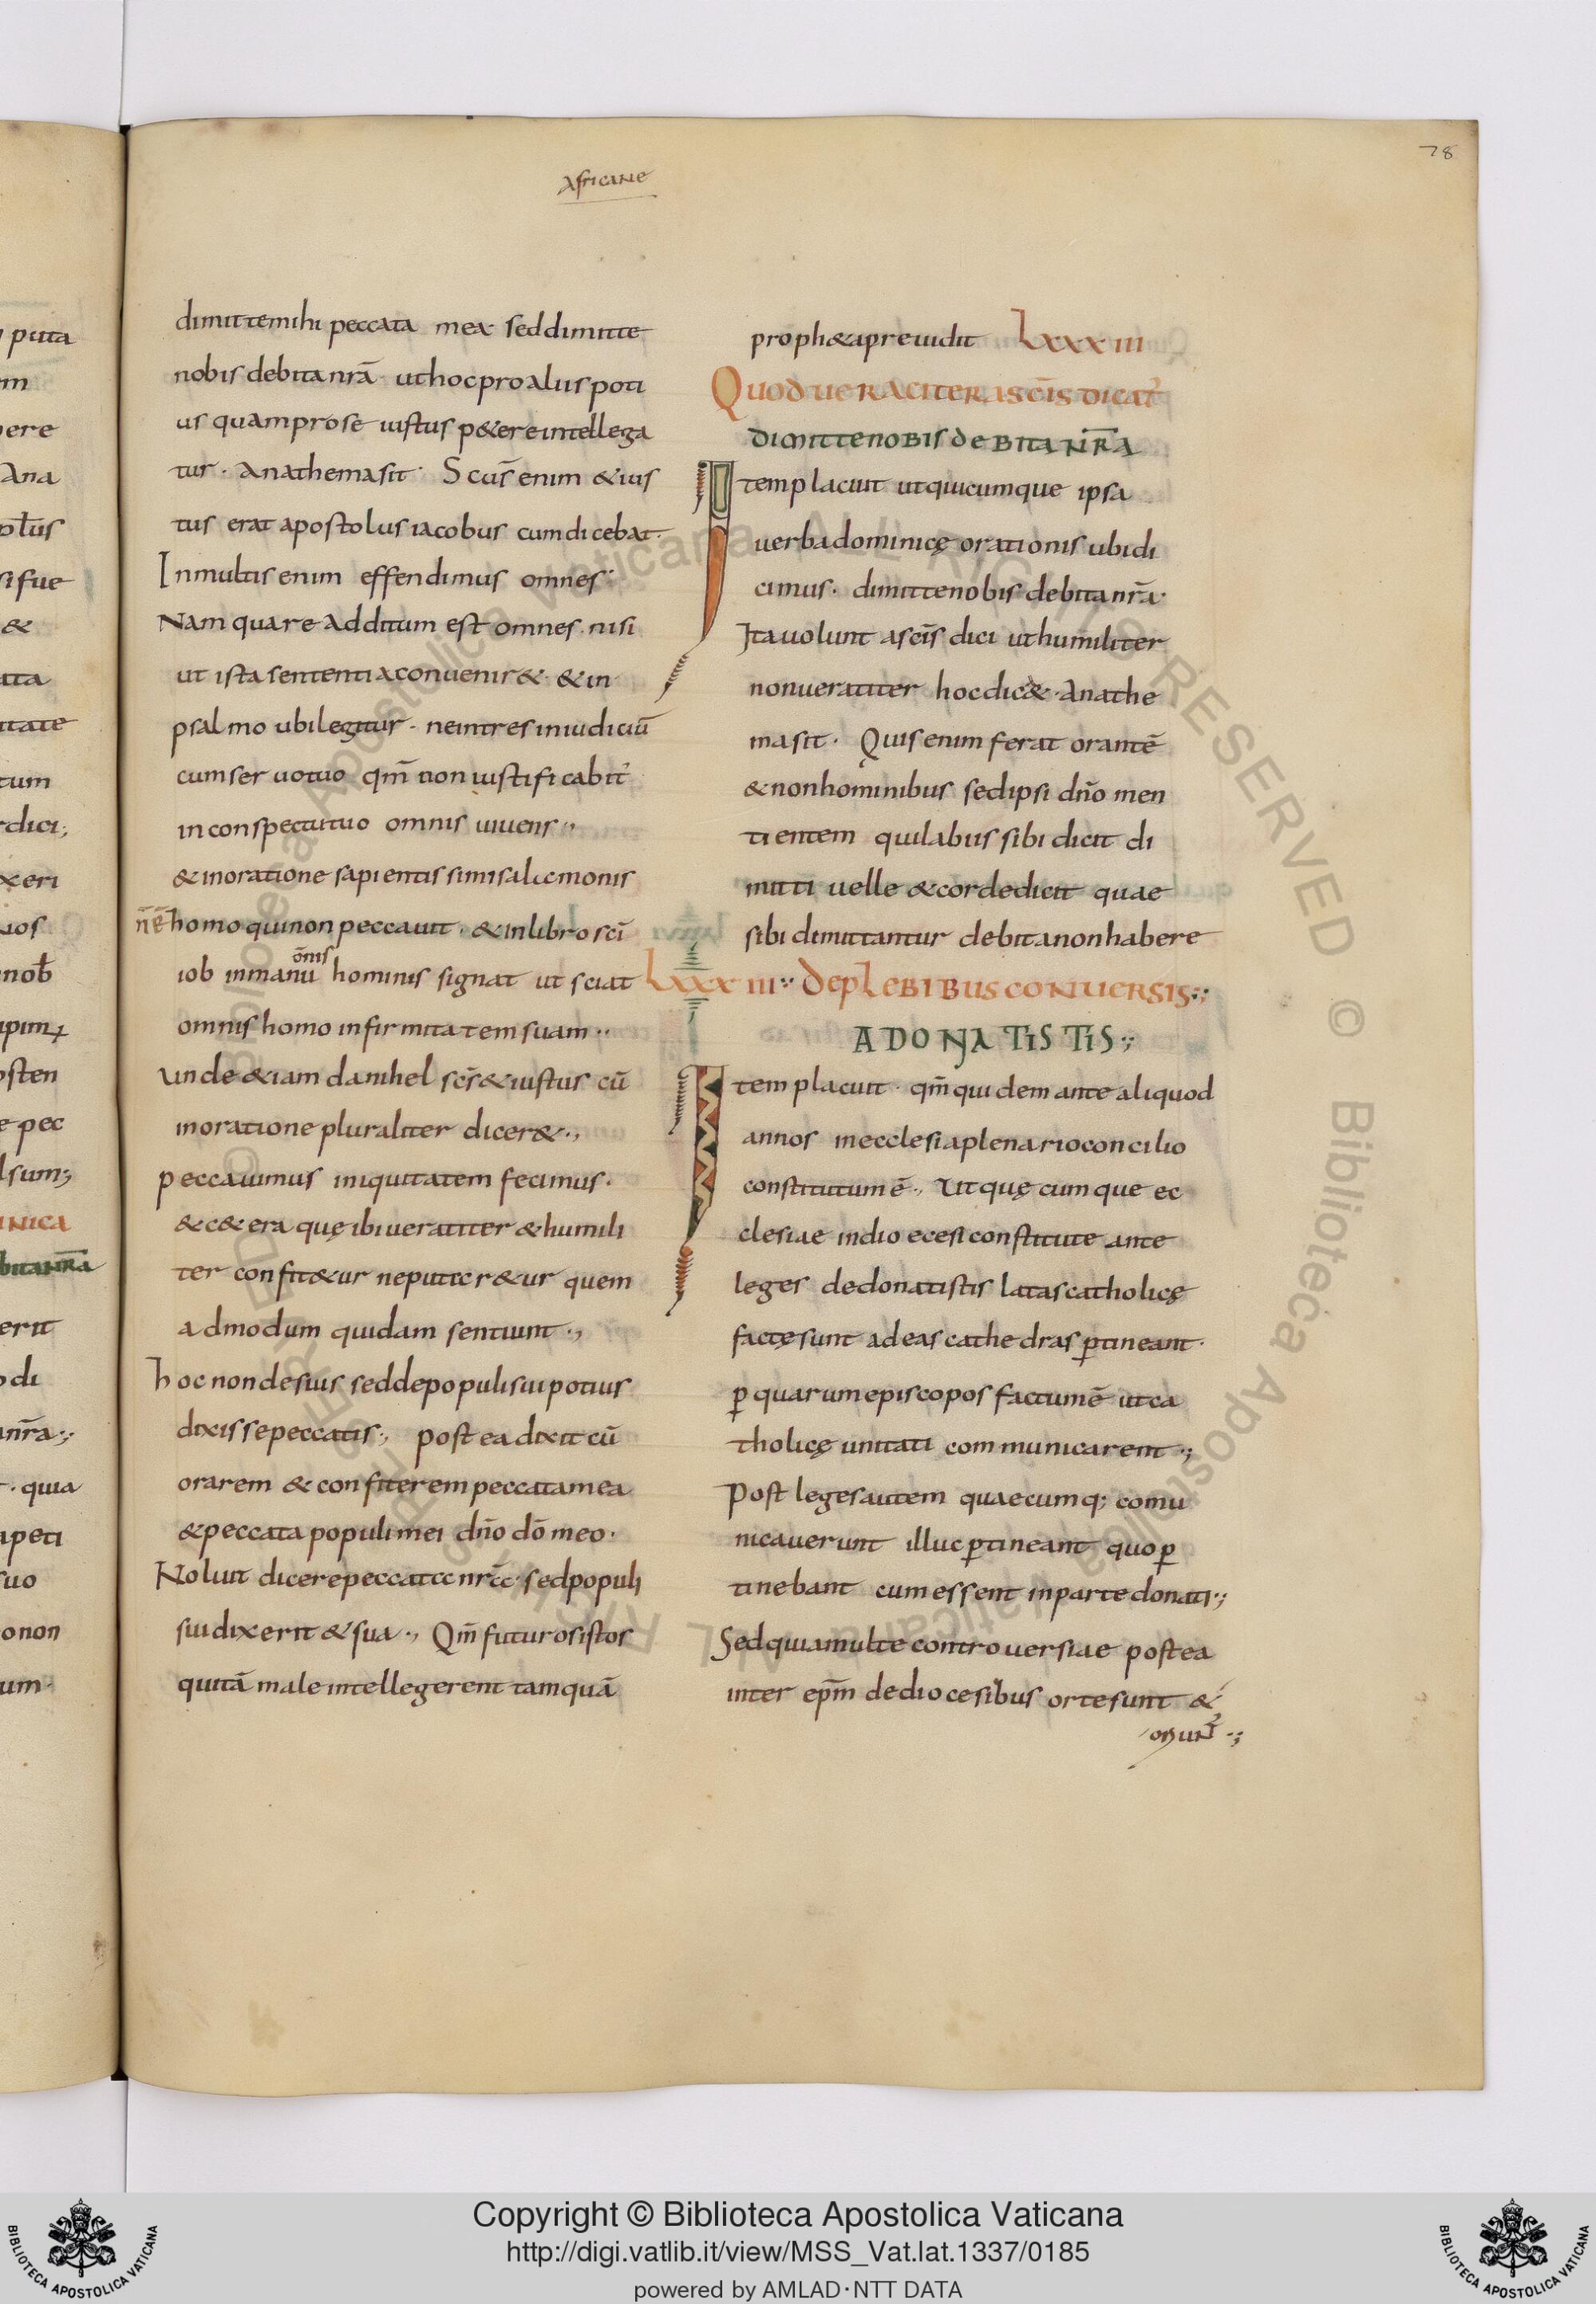 Africane
78
dimittemihi peccata mea· seddimitte
nobis debita nr̄ā· uthocproaliis poti
us quamprose iustus p&ereintellega
tur· anathemasit· Sc̄us enim &ius
tus erat apostolus iacobus cumdicebat·
Inmultis enim effendimus omnes·
Nam quare additum est omnes. nisi
ut ista sententiaconuenir& &in
psalmo ubilegitur· neintres iniudiciū
cumseruotuo qm̄ non iustificabit᷑
inconspectutuo omnis uiuens·,
&inoratione sapientissimi salicmonis
n̄ ē homo quinonpeccauit· &inlibro sc̄i
iob inmanū ōnis hominis signat ut sciat
omnis homo infirmitatem suam··
unde &iam danihel sc̄s &iustus cū
inoratione pluraliter dicer&·,
peccauimus iniquitatem fecimus·
&c&era quę ibi ueraciter &humili
ter confit&ur neputicr&ur quem
admodum quidam sentiunt·,
hoc nondesuis seddepopulisui potius
dixissepeccatis·, postea dixit cū
orarem &confiterem peccatamea
&peccata populimei dn̄o dō meo·
Noluit dicerepeccatccnr̄cc· sedpopuli
sui dixerit &sua·, Qm̄ futurosistos
quitā male intellegerent tamquā
proph&apreuidit Lxxxiii
Quod ueraciter a sc̄is dicat᷑
dimittenobis debita nr̄a
Item placuit utquicumque ipsa
uerbadominicę orationis ubidi
cimus· dimittenobis debita nr̄a·
Ita uolunt a sc̄is dici uthumiliter
nonueraciter hocdic& anathe
masit· Quis enim ferat orantē
&nonhominibus sedipsi dn̄o men
tientem quilabiis sibi dicit di
mitti uelle &cordedicit quae
sibi dimittantur debitanonhabere
Lxxxiiii·: De plebibus conuersis·:
A DONATISTIS·;
Item placuit· qm̄ quidem ante aliquod
annos inecclesiaplenarioconcilio
constitutumē·, Ut quęcumque ec
clesiae indiocesi constitute ante
leges dedonatistis latas catholicę
factęsunt adeas cathedras ꝑtineant·
ꝑ quarumepiscopos factumē utca
tholicę unitati communicarent·;
Post leges autem quaecumq; comu
nicauerunt illuc ꝑtineant quo ꝑ
tinebant cumessent inparte donati·;
Sed quiamulte controuersiae postea
inter ep̄m dediocesibus ortesunt &
oriunt᷑·;
puta
m
ere
Ana
si fue
&
tum
dici;
xeri
nob̄
osten
pec
sum;
nica
bita nr̄a
erit
di
nr̄a·;
· quia
apeti
suo
onon
um·
© Biblioteca Apostolica Vaticana ALL RIGHTS RESERVED
© Biblioteca Apostolica Vaticana ALL RIGHTS RESERVED
BIBLIOTECA APOSTOLICA VATICANA
Copyright © Biblioteca Apostolica Vaticana
http://digi.vatlib.it/view/MSS_Vat.lat.1337/0185
powered by AMLAD·NTT DATA
BIBLIOTECA APOSTOLICA VATICANA